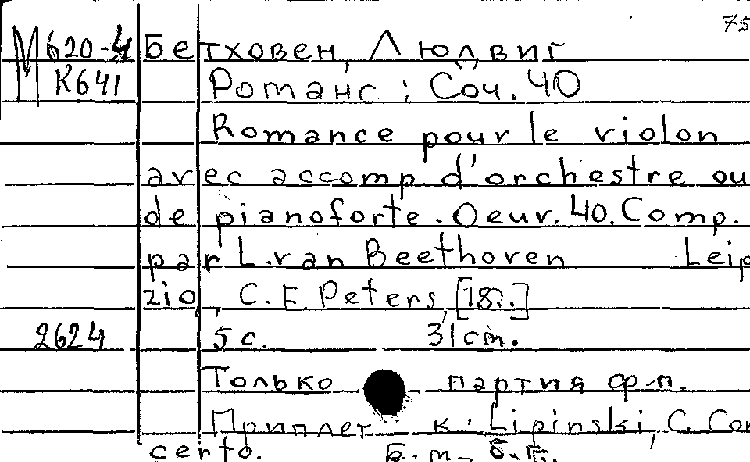 75
М620-4 Бетховен, Людвиг
К641 Романс; Соч. 40
Romance pour le violon
avec accomp d'orchestre ou
de pianoforte. Oeuv. 40. Comp.
par L. van Beethoven Leip
zig, C. F. Peters, [18..]
2624 5 с. 31 cm.
Только партия ф-п.
Приплет к: Lipinski, C. Con
certo. Б. м., б. г.